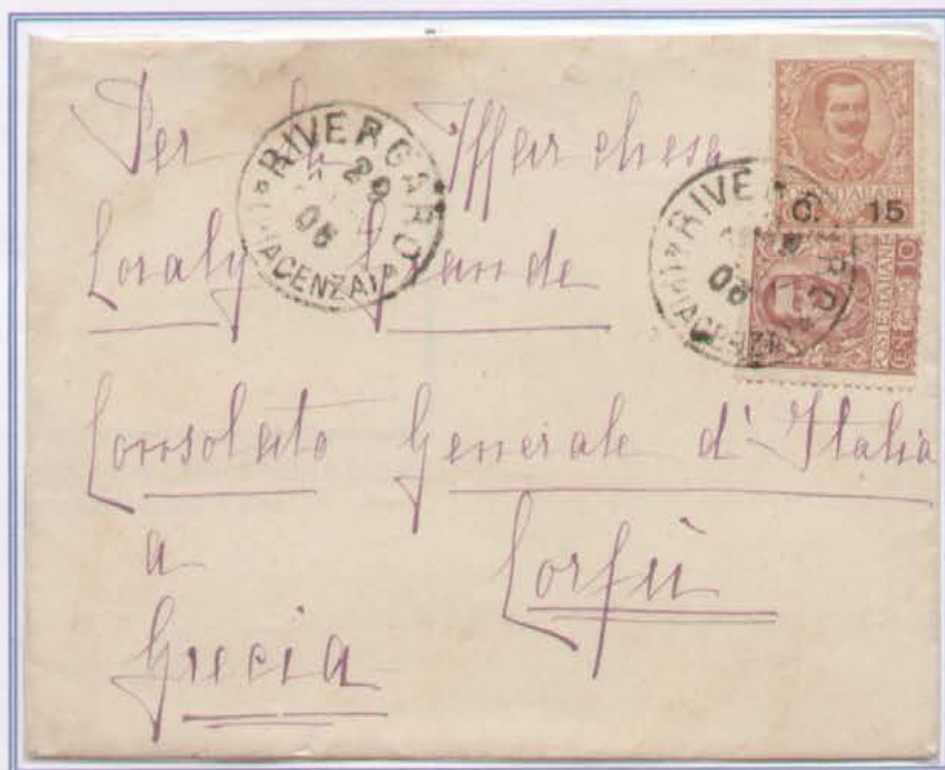 Per la Marchesa
Grande
Consolato Generale d'Italia
a Corfù
Grecia
RIVERGARO
29
05
(PIACENZA)
RIVERGARO
(PIACENZA)
POSTE ITALIANE
C. 15
POSTE ITALIANE
CENT. 10